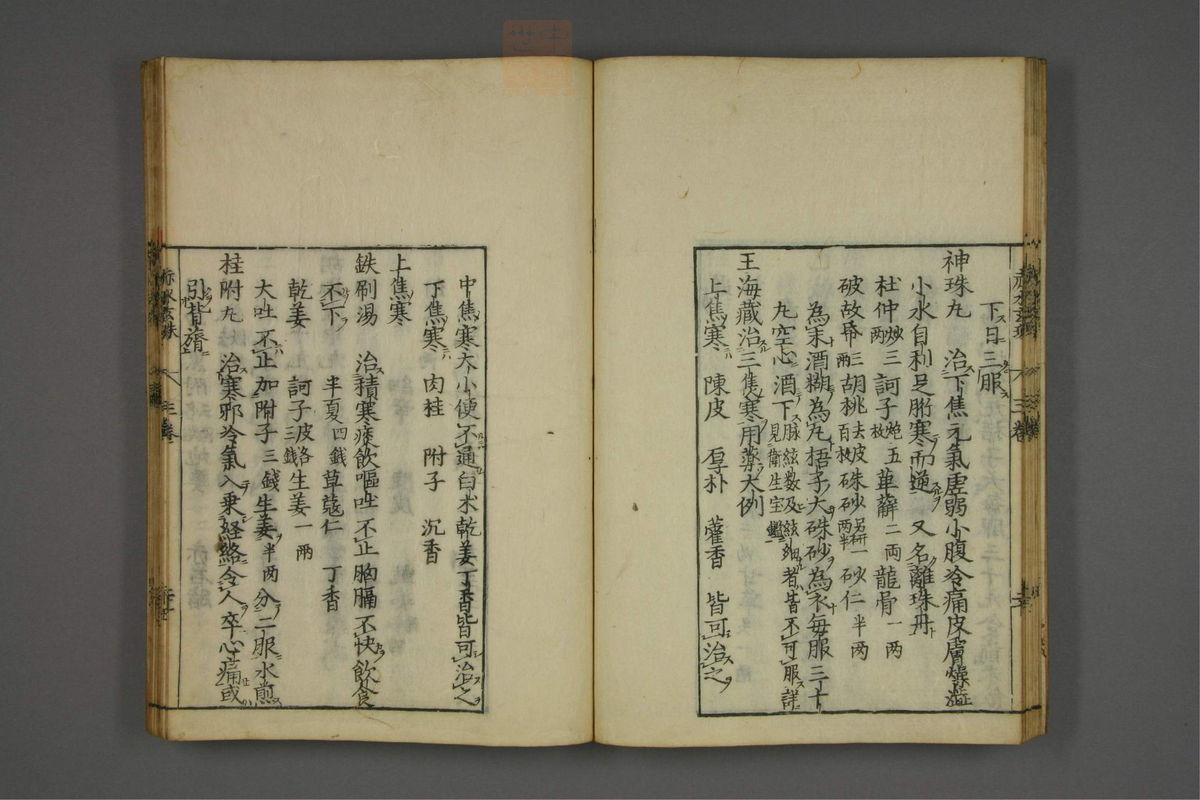 下日三服
神珠丸 治下焦元氣虛弱小腹冷痛皮膚燥澁
小水自利足胕寒而逆 又名離珠丹
杜仲炒三兩 訶子炮五枚 萆薢二兩 龍骨一兩
破故帋三兩 胡桃去皮百枚 硃砂另研一兩半 砂仁半兩
為末酒糊為丸梧子大硃砂為衣每服三十
丸空心酒下脉絃數及絃細者皆不可服詳見衛生宝鑑
王海藏治三焦寒用藥大例
上焦寒 陳皮 厚朴 藿香 皆可治之
中焦寒大小便不通白朮乾姜丁香皆可治之
下焦寒 肉桂 附子 沉香
上焦寒
鉄刷湯 治積寒痰飲嘔吐不止胸膈不快飲食
不下 半夏四錢 草蔻仁 丁香
乾姜 訶子皮各三錢 生姜一兩
大吐不止加附子三錢生姜半兩分二服水煎
桂附丸 治寒邪冷氣入乗経絡令人卒心痛或
引背膂
赤水玄珠 三卷
赤水玄珠 三卷